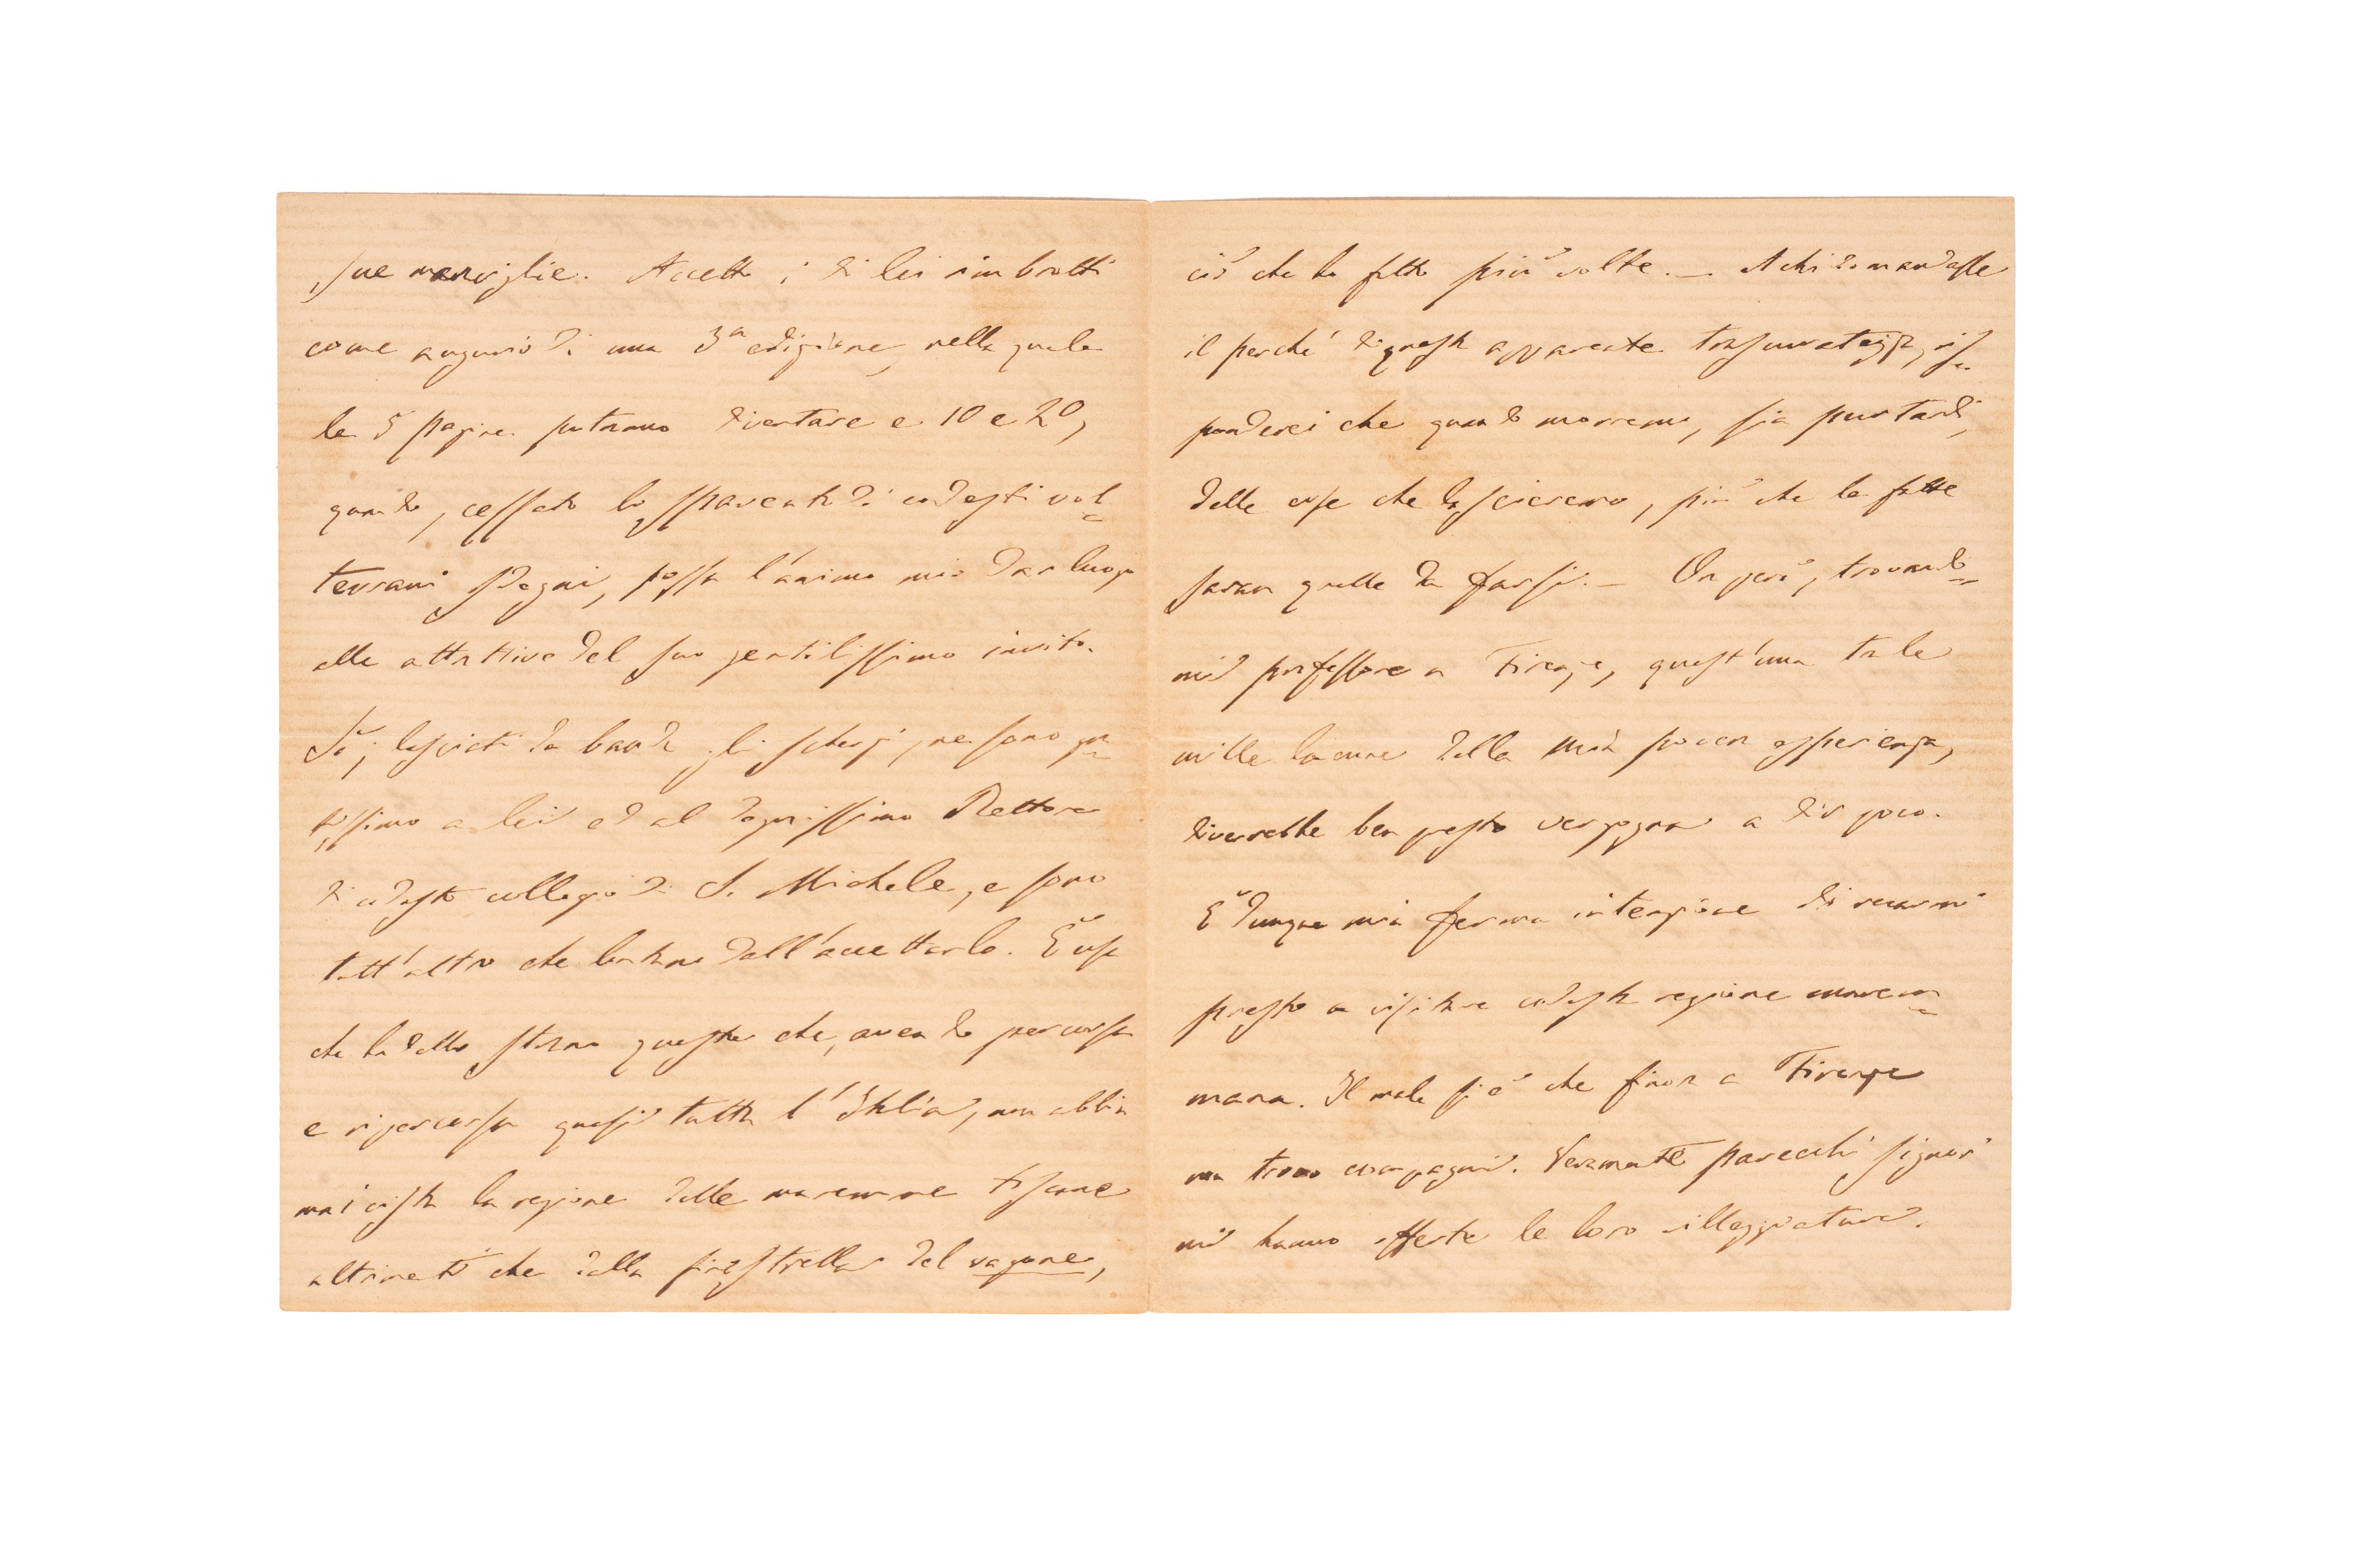 sue meraviglie. Accetto i di lei rimbrotti
come augurio di una 3ª edizione, nella quale
le 5 pagine potranno diventare e 10 e 20,
quando, cessato lo spavento di codesti vol=
terrani sdegni, possa l'animo mio dar luogo
alle attrattive del suo gentilissimo invito.
Sì; lasciati da banda gli scherzi, ne sono gra=
tissimo a lei ed al degnissimo Rettore
di codesto collegio di S. Michele, e sono
tutt'altro che lontano dall'accettarlo. È cosa
che ha dello strano questa che, avendo percorsa
e ripercorsa quasi tutta l'Italia, non abbia
mai vista la regione delle maremme toscane
altrimenti che dalla finestrella del vagone,
ciò che ho fatto più volte. — A chi domandasse
il perché di questa apparente trascuratezza, ris=
ponderei che quando morremo, sia pur tardi,
delle cose che lasceremo, più che le fatte
saran quelle da farsi. — Or però, trovando=
mi professore a Firenze, quest'una tra le
mille lacune della mia povera esperienza,
diverrebbe ben presto vergogna a dir poco.
È dunque mia ferma intenzione di recarmi
presto a visitare codesta regione marem=
mana. Il male si è che finora a Firenze
non trovo compagni. Veramente parecchi signori
mi hanno offerte le loro villeggiature.